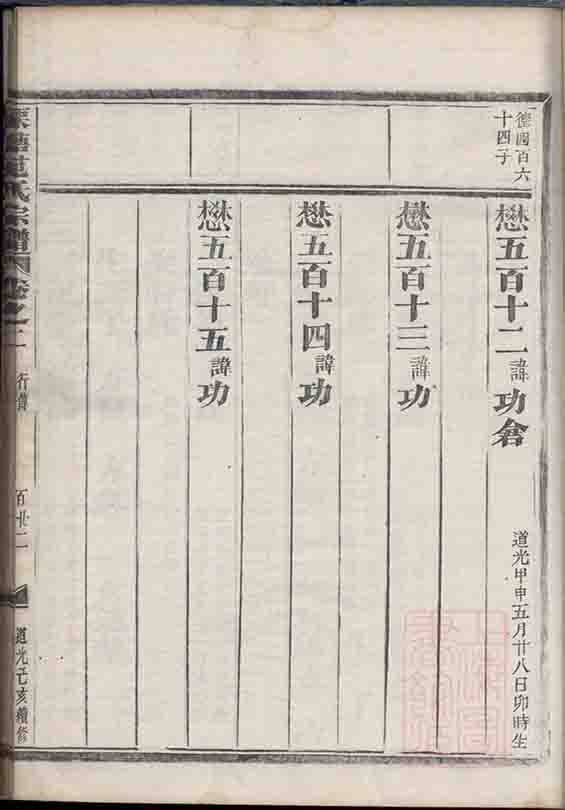 德四百六
十四子
懋五百十二諱功倉
道光甲申五月廿八日卯時生
懋五百十三諱功
懋五百十四諱功
懋五百十五諱功
范氏宗譜
卷之二
行譜
百廿二
道光己亥續修